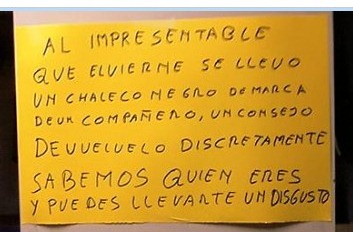 AL IMPRESENTABLE
QUE ELVIERNE SE LLEVO
UN CHALECO NEGRO DE MARCA
DEUN COMPAÑERO, UN CONSEJO
DEVUELVELO DISCRETAMENTE
SABEMOS QUIEN ERES
Y PUEDES LLEVARTE UN DISGUSTO